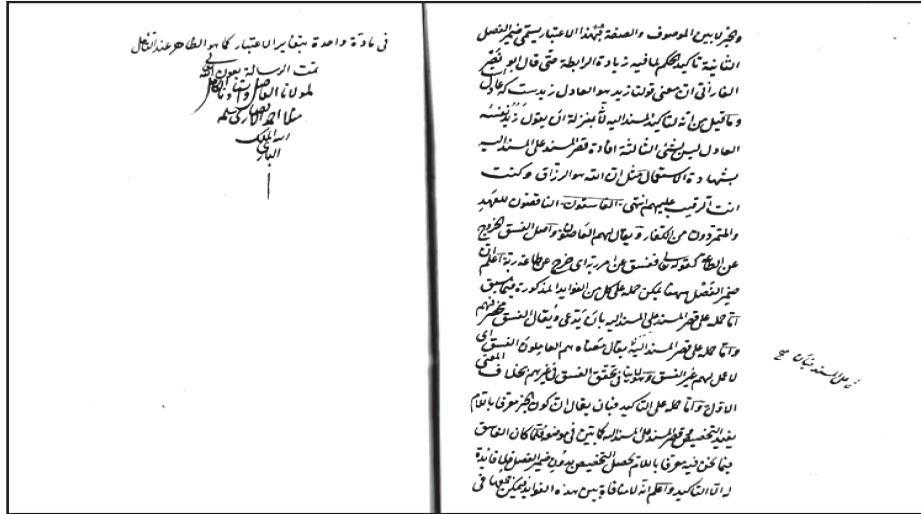 والخبر لا بين الموصوف والصفة فبهذا الاعتبار يسمى ضمير الفصل
الثانية تأكيد الحكم لما فيه زيادة الرابطة حتى قال ابو نصر
الفارابي ان معنى قولنا زيد هو العادل زيدست كه عادلست
وما قيل من انه لتأكيد المسند اليه لأنه بمنزلة ان يقول زيد نفسه
العادل ليس بشئ الثالثة افادة قصر المسند على المسند اليه
بشهادة الاستعمال مثل ان الله هو الرزاق وكنت
انت الرقيب عليهم انتهى الفاسقون الناقضون للعهد
والمتمردون من الكفار ويقال لهم العاصون واصل الفسق الخروج
عن الطاعة كقوله تعالى ففسق عن امر ربه اى خرج عن طاعة ربه اعلم ان
ضمير الفصل ههنا يمكن حمله على كل من الفوايد المذكورة فيما سبق
اما حمله على قصر المسند على المسند اليه بان يدعى ويقال الفسق مختصر فيهم
واما حمله على قصر المسند اليه يقال معناه هم العاملون الفسق اى
لا عمل لهم غير الفسق وهو لا ينافى تحقق الفسق فى غيرهم بخلاف المعنى
الاول واما حمله على التأكيد فبان يقال ان كون الخبر معرفا باللام
يفيد التخصيص قصر المسند على المسند اليه كما بين فى موضعه فلما كان الفاسق
فيما نحن فيه معرفا باللام تحصل التخصيص بدون ضمير الفصل فلا فائدة
له الا التأكيد واعلم انه لا منافاة بين هذه الفوايد فيمكن جمعها فى
على المسند فبان صح
فى مادة واحدة بتغاير الاعتبار كما هو الظاهر عند التأمل
تمت الرسالة بعون الله
لمولانا الفاضل واستادنا الكامل
منلا احمد الانصارى سلمه
الله الملك
البارى